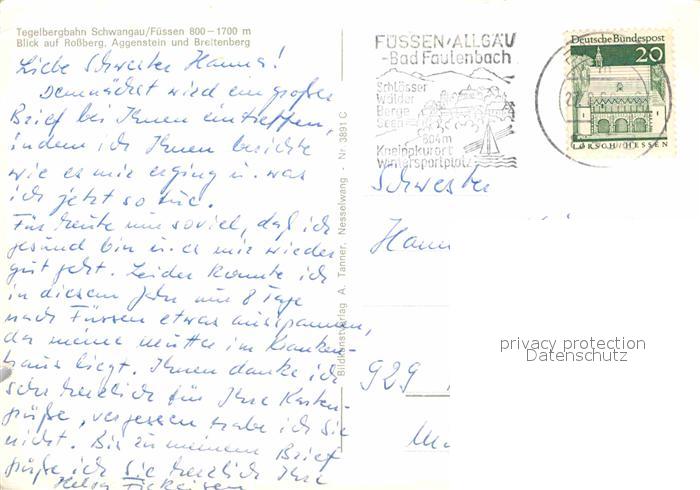 Tegelbergbahn Schwangau/Füssen 800—1700 m
Blick auf Roßberg, Aggenstein und Breitenberg
Liebe Schwester Hanna!
Demnächst wird ein großer
Brief bei Ihnen eintreffen,
indem ich Ihnen berichte
wie es mir erging u. was
ich jetzt so tue.
Für heute nur soviel, daß ich
gesund bin u. es mir wieder
gut geht. Leider konnte ich
in diesem Jahr nur 8 Tage
nach Füssen etwas ausspannen,
da meine Mutter im Kranken-
haus liegt. Ihnen danke ich
sehr herzlich für Ihre Karten-
grüße, vergessen habe ich Sie
nicht. Bis zu meinem Brief
grüße ich Sie herzlich Ihre
Helga
Bildkunstverlag A. Tanner, Nesselwang - Nr 3891 C
FÜSSEN/ALLGÄU
-Bad Faulenbach
Schlösser
Wälder
Berge
Seen
804m
Kneippkurort
Wintersportplatz
Deutsche Bundespost
20
LORSCH/HESSEN
Schwester
Hann
929
privacy protection
Datenschutz